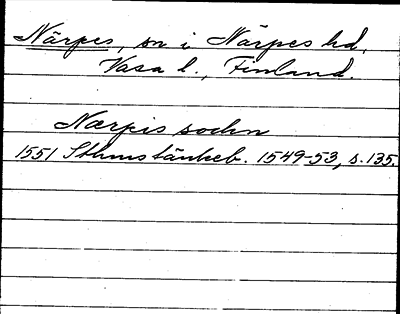 Närpes, sn i Närpes hd,
Vasa l., Finland.
Nærpis sochn
1551 Sthms tänkeb. 1549-53, s. 135.